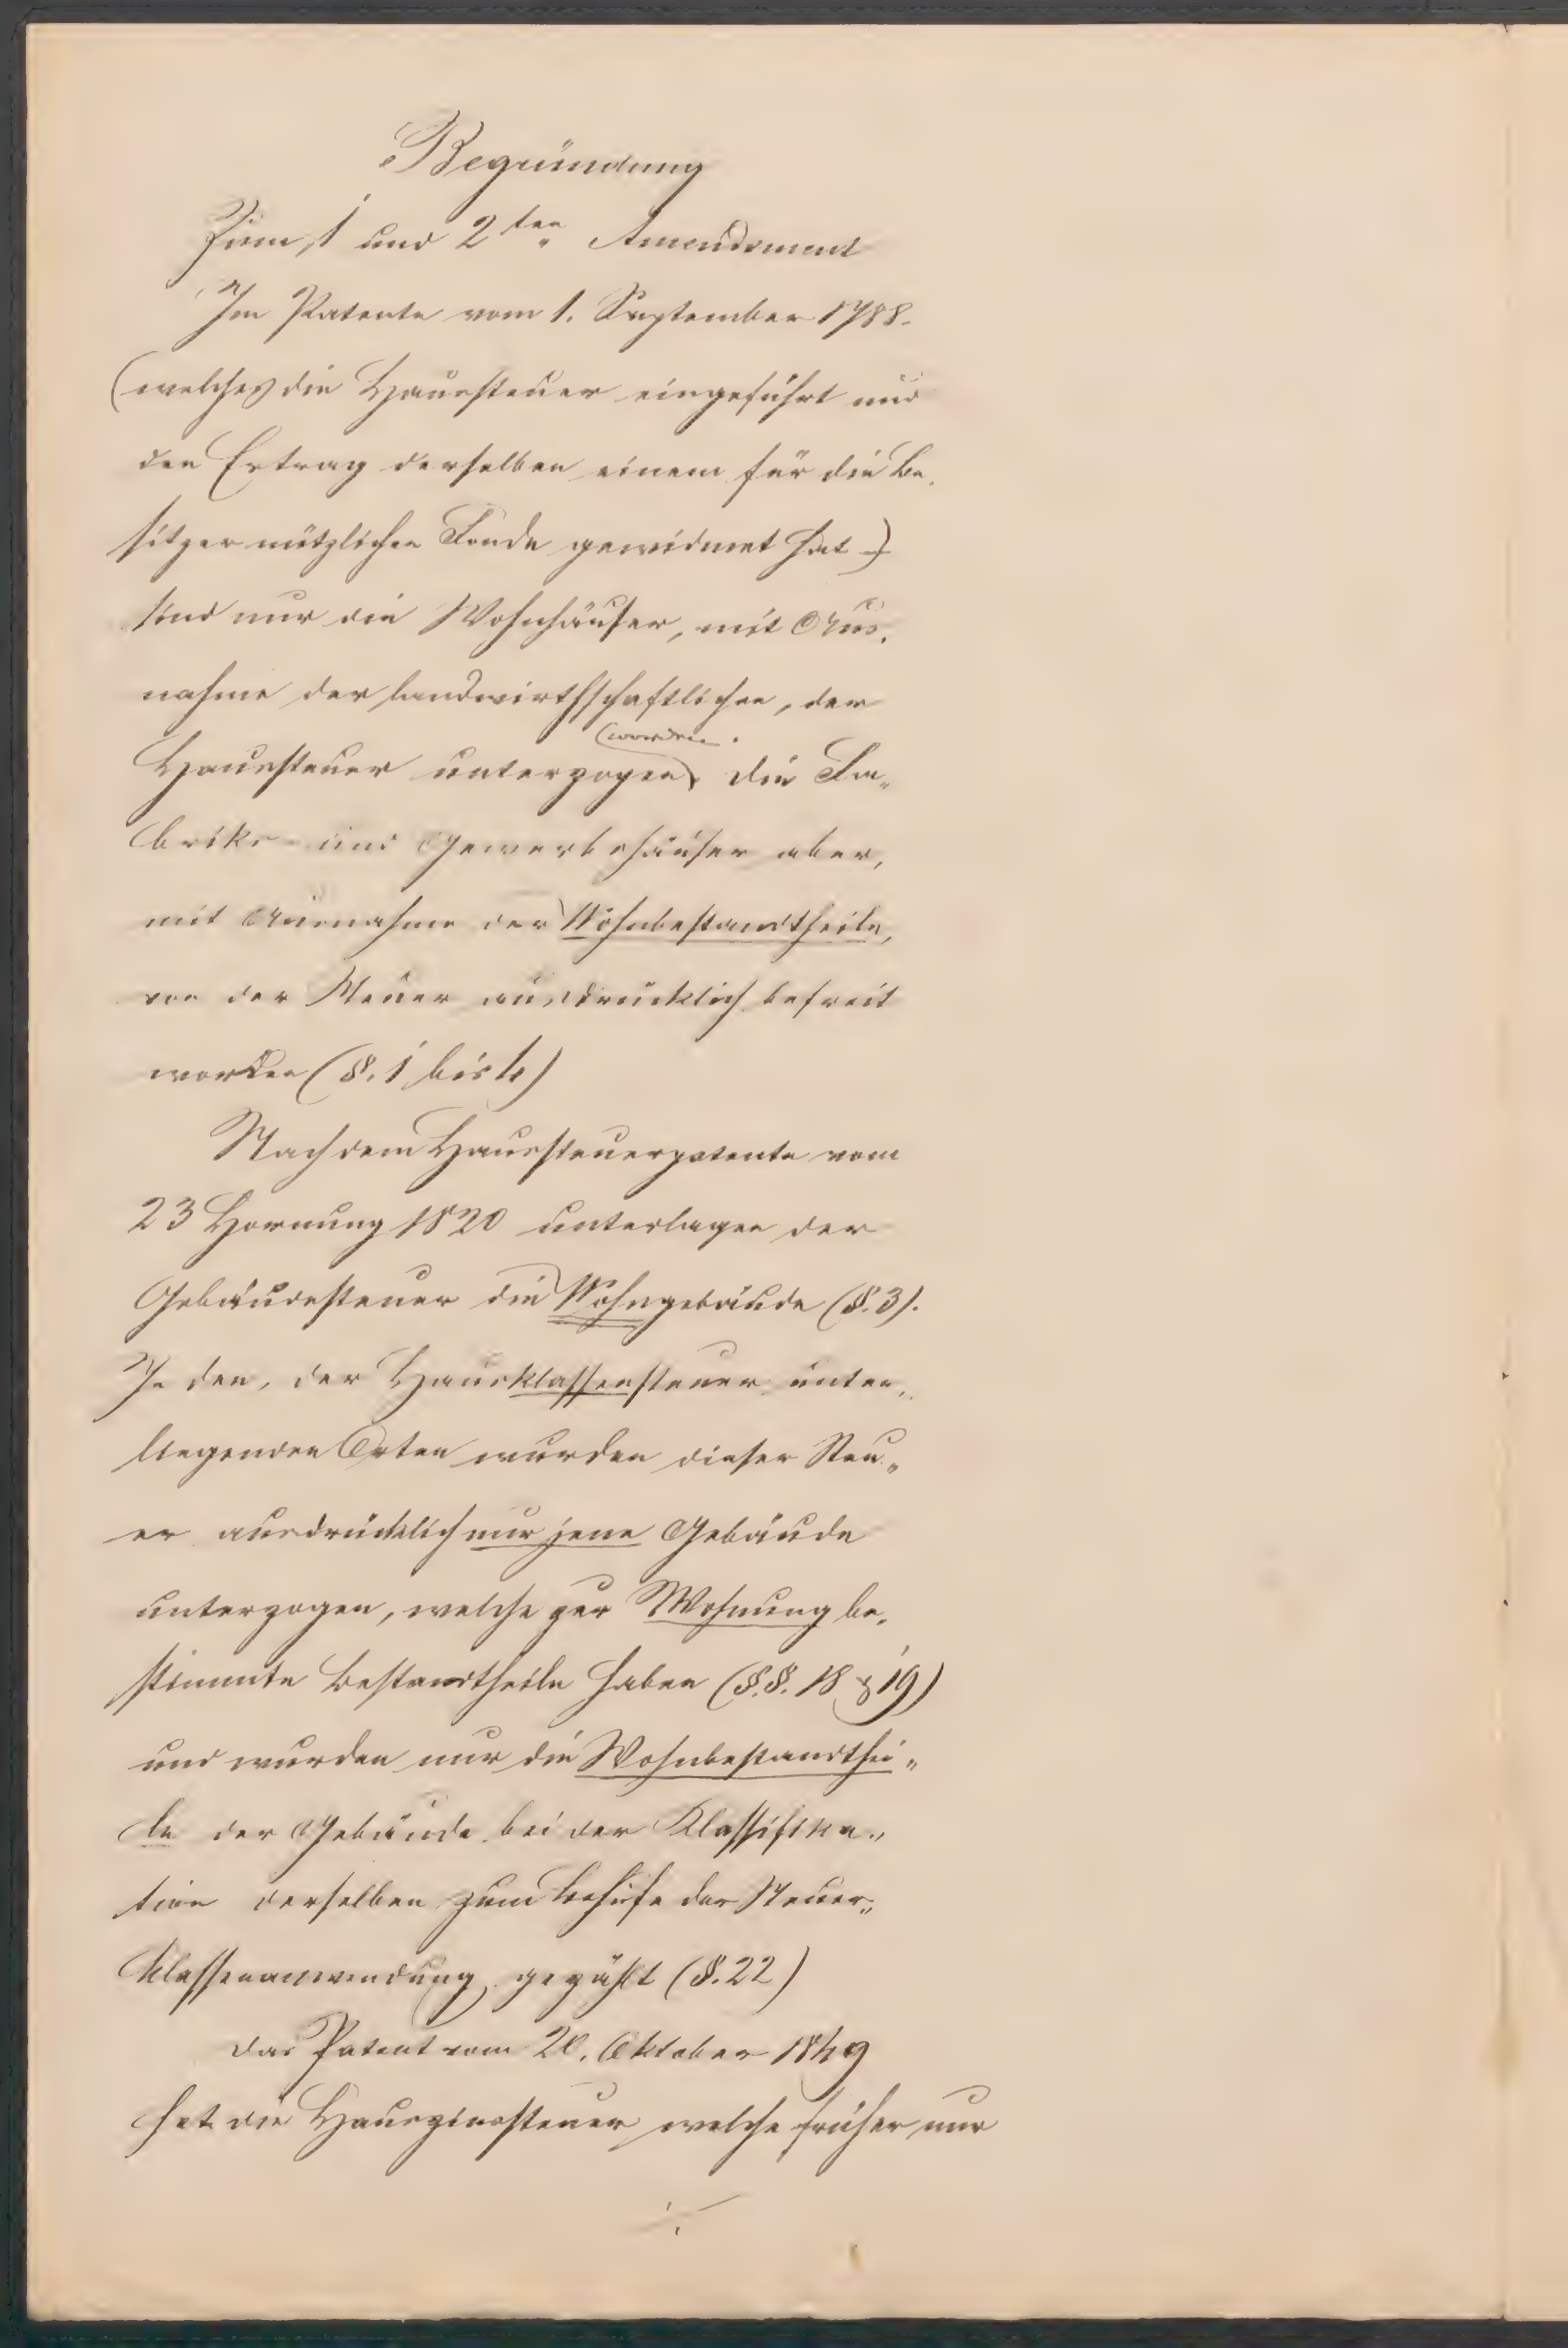 Begründung
Zum 1 und 2ten Amendement
Im Patente vom 1. September 1788.
(welches die Haussteuer eingeführt und
den Ertrag derselben einem für die Be„
sitzer nützlichen Fonde gewidmet hat)
sind nur die Wohnhäuser, mit Aus„
nahme der landwirthschaftlichen, der
worden.
Haussteuer unterzogen, die Fa„
briks- und Gewerbshäuser aber,
mit Ausnahme der Wohnbestandtheile,
von der Steuer ausdrücklich befreit
worden (§. 1 bis 4)
Nach dem Haussteuerpatente vom
23 Hornung 1820 unterlagen der
Gebäudesteuer die Wohngebäude (§. 3).
In den, der Hausklassensteuer unter„
liegenden Orten wurden dieser Steu„
er ausdrücklich nur jene Gebäude
unterzogen, welche zur Wohnung be„
stimmte Bestandtheile haben (§.§. 18 & 19)
und wurden nur die Wohnbestandthei„
le der Gebäude bei der Klassifika„
tion derselben zum Behufe der Steuer„
klassenanwendung gezählt (§. 22)
Das Patent vom 20. Oktober 1849
hat die Hauszinssteuer welche früher nur
./.